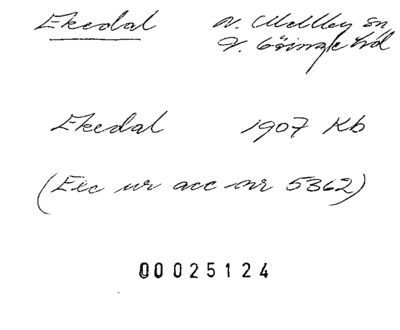 Ekedal V. Mellby sn
V. Göinge hd
Ekedal 1907 Kb
(Exc ur acc nr 5362)
00025124